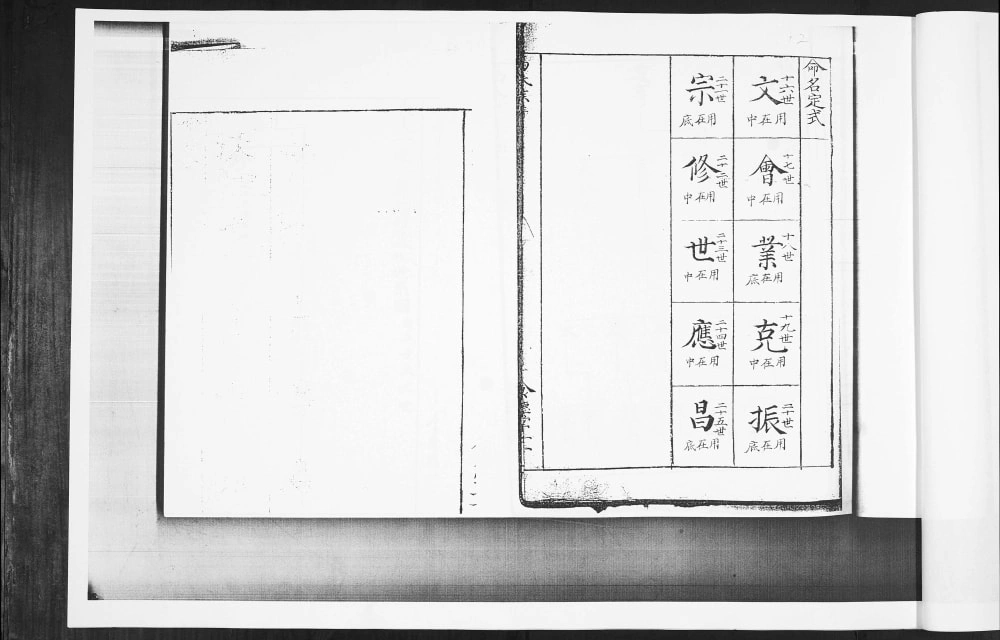 命名定式
文
十六世
用在中
會
十七世
用在中
業
十八世
用在底
克
十九世
用在中
振
二十世
用在底
宗
二十一世
用在底
修
二十二世
用在中
世
二十三世
用在中
應
二十四世
用在中
昌
二十五世
用在底